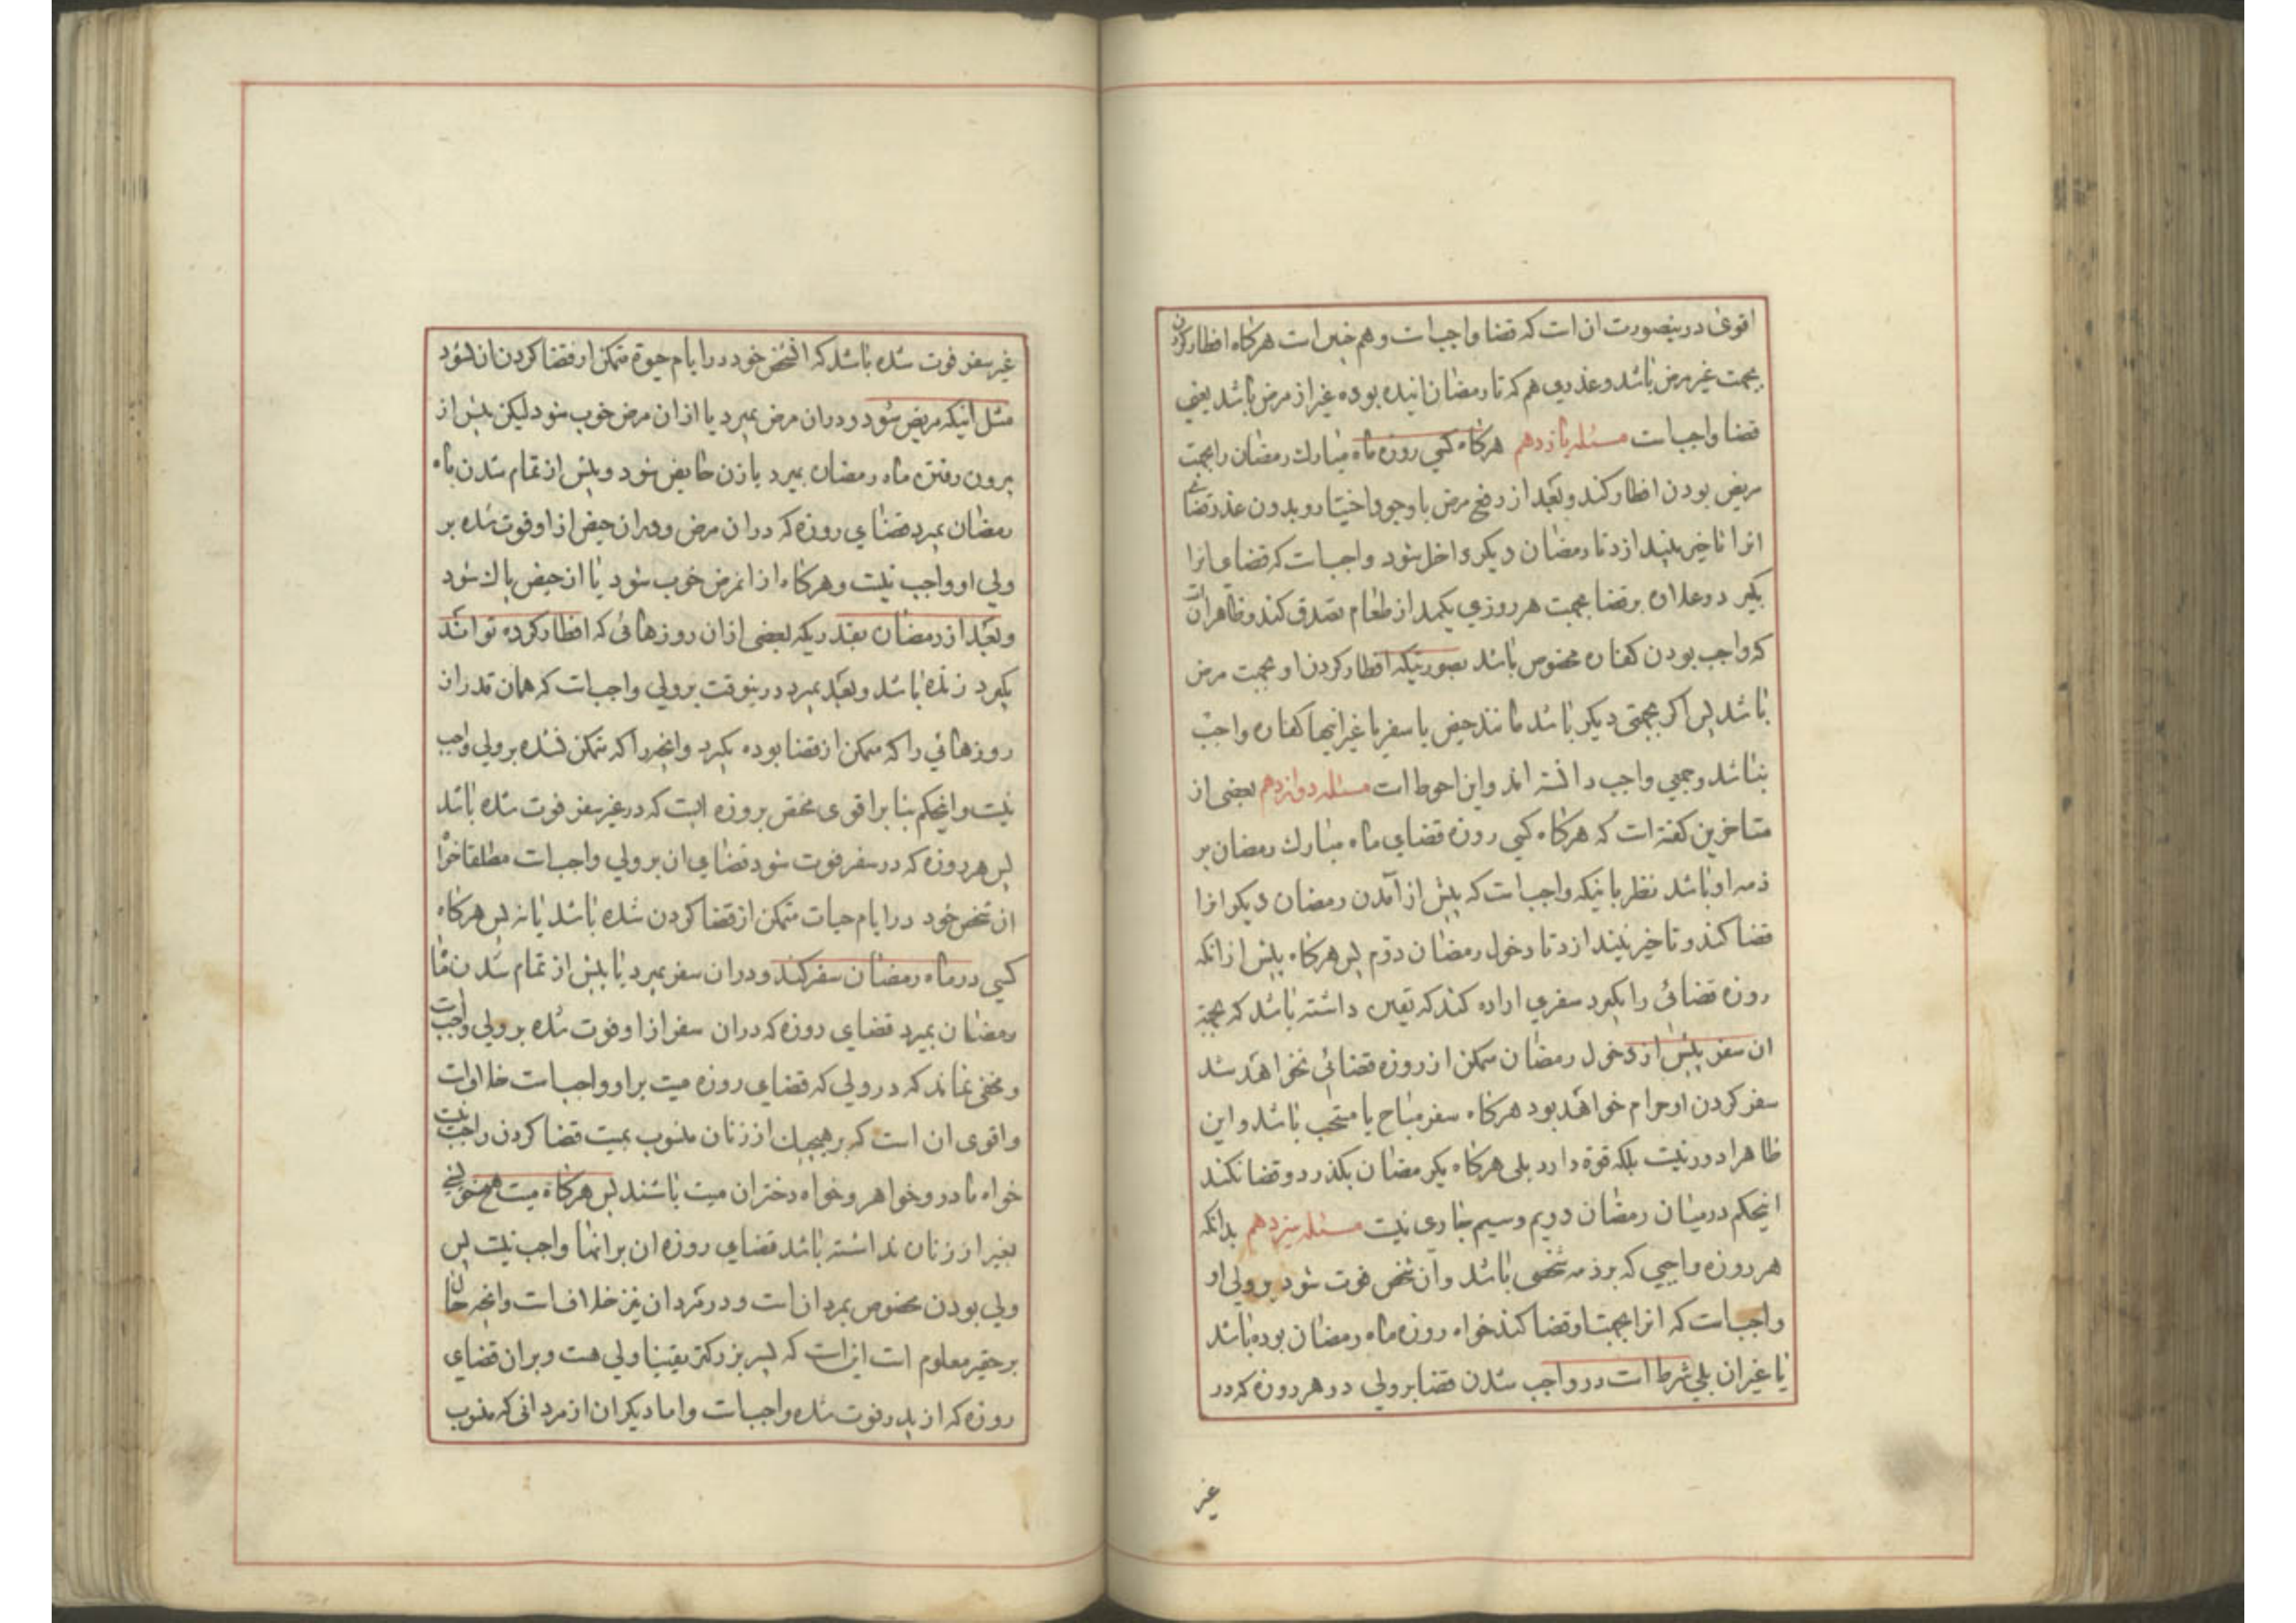 اقوی درینصورت ان است که قضا واجب است و هم چنین است هرکاه افطار کردن
بجهت غیر مرض باشد و عذری هم که تا رمضان اینده بوده غیر از مرض باشد یعنی
قضا واجب است مسئله یازدهم هرکاه کسی روزه ماه مبارك رمضان را بجهت
مریض بودن افطار کند و بعد از رفع مرض با وجود اختیار و بدون عذر قضای
انرا تاخیر بیندازد تا رمضان دیکر داخل شود واجب است که قضای انرا
بکیرد و علاوه بر قضا بجهت هر روزی یکمد از طعام تصدق کند و ظاهر ان است
که واجب بودن کفاره مخصوص باشد بصورتیکه افطار کردن او بجهت مرض
باشد پس اکر بجهتی دیکر باشد مانند حیض یا سفر یا غیر اینها کفاره واجب
نباشد و جمعی واجب دانسته اند و این احوط است مسئله دوازدهم بعضی از
متاخرین کفته است که هرکاه کسی روزه قضای ماه مبارك رمضان بر
ذمه او باشد نظر باینکه واجب است که پیش از آمدن رمضان دیکر انرا
قضا کند و تاخیر نیندازد تا دخول رمضان دوم پس هرکاه پیش از انکه
روزه قضائی را بکیرد سفری اراده کند که یقین داشته باشد که بجهة
ان سفر پیش از دخول رمضان متمکن از روزه قضائی نخواهد شد
سفر کردن او حرام خواهد بود هرکاه سفر مباح یا مستحب باشد و این
ظاهرا دور نیست بلکه قوة دارد بلی هرکاه یکرمضان بکذرد و قضا نکند
اینحکم در میان رمضان دویم و سیم جاری نیست مسئله سیزدهم بدانکه
هر روزه واجبی که بر ذمه شخصی باشد و آن شخص فوت شود بر ولی او
واجب است که انرا بجهت او قضا کند خواه روزه ماه رمضان بوده باشد
یا غیر ان بلی شرط است در واجب شدن قضا بر ولی در هر روزه که در
غیر
غیر سفر فوت شده باشد که انشخص خود در ایام حیوة متمکن از قضا کردن ان شود
مثل اینکه مریض شود و در ان مرض بمیرد یا از ان مرض خوب شود لیکن پیش از
بیرون رفتن ماه رمضان بمیرد یا زن حایض شود و پیش از تمام شدن ماه
رمضان بمیرد قضای روزه که در ان مرض و در ان حیض از او فوت شده بر
ولی او واجب نیست و هرکاه از انمرض خوب شود یا از حیض پاك شود
و بعد از رمضان بقدریکه بعضی از ان روزهائی که افطار کرده تواند
بکیرد زنده باشد و بعد بمیرد درینوقت بر ولی واجب است که همان قدر از
روزهائی را که متمکن از قضا بوده بکیرد و انچه را که متمکن نشده بر ولی واجب
نیست و اینحکم بنا بر اقوی مختص بروزه ایست که در غیر سفر فوت شده باشد
پس هر روزه که در سفر فوت شود قضای ان بر ولی واجب است مطلقا خواه
ان شخص خود در ایام حیات متمکن از قضا کردن شده باشد یا نه پس هرکاه
کسی در ماه رمضان سفر کند و در ان سفر بمیرد یا پیش از تمام شدن ماه
رمضان بمیرد قضای روزه که در ان سفر از او فوت شده بر ولی واجب است
و مخفی نماند که در ولی که قضای روزه میت بر او واجب است خلاف است
و اقوی ان است که بر هیچیك از زنان منسوب بمیت قضا کردن واجب نیست
خواه مادر و خواهر و خواه دختران میت باشند پس هرکاه میت هیچ خویشی
بغیر از زنان نداشته باشد قضای روزه ان بر انها واجب نیست پس
ولی بودن مخصوص بمردان است و در مردان نیز خلاف است و انچه حال
بر حقیر معلوم است این است که پسر بزرکتر یقینا ولی هست و بر ان قضای
روزه که از پدر فوت شده واجب است و اما دیکران از مردانی که منسوب